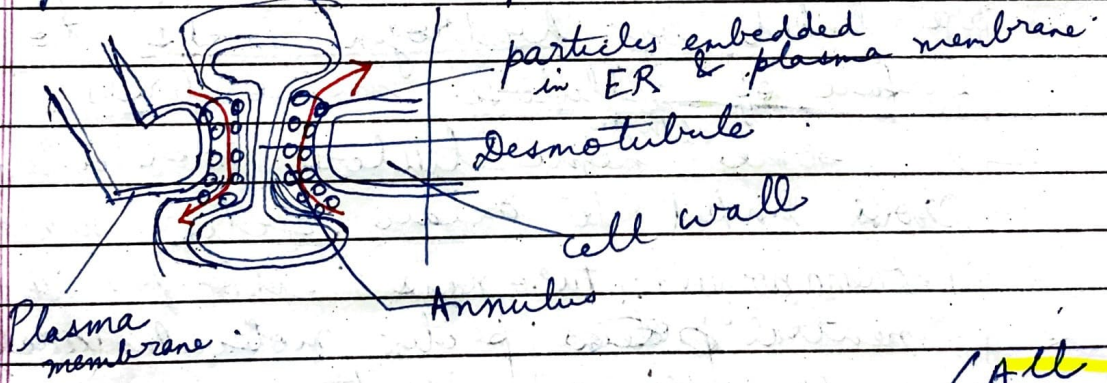 particles embedded
in ER & plasma membrane
Desmotubule
cell wall
Annulus
Plasma
membrane
(All